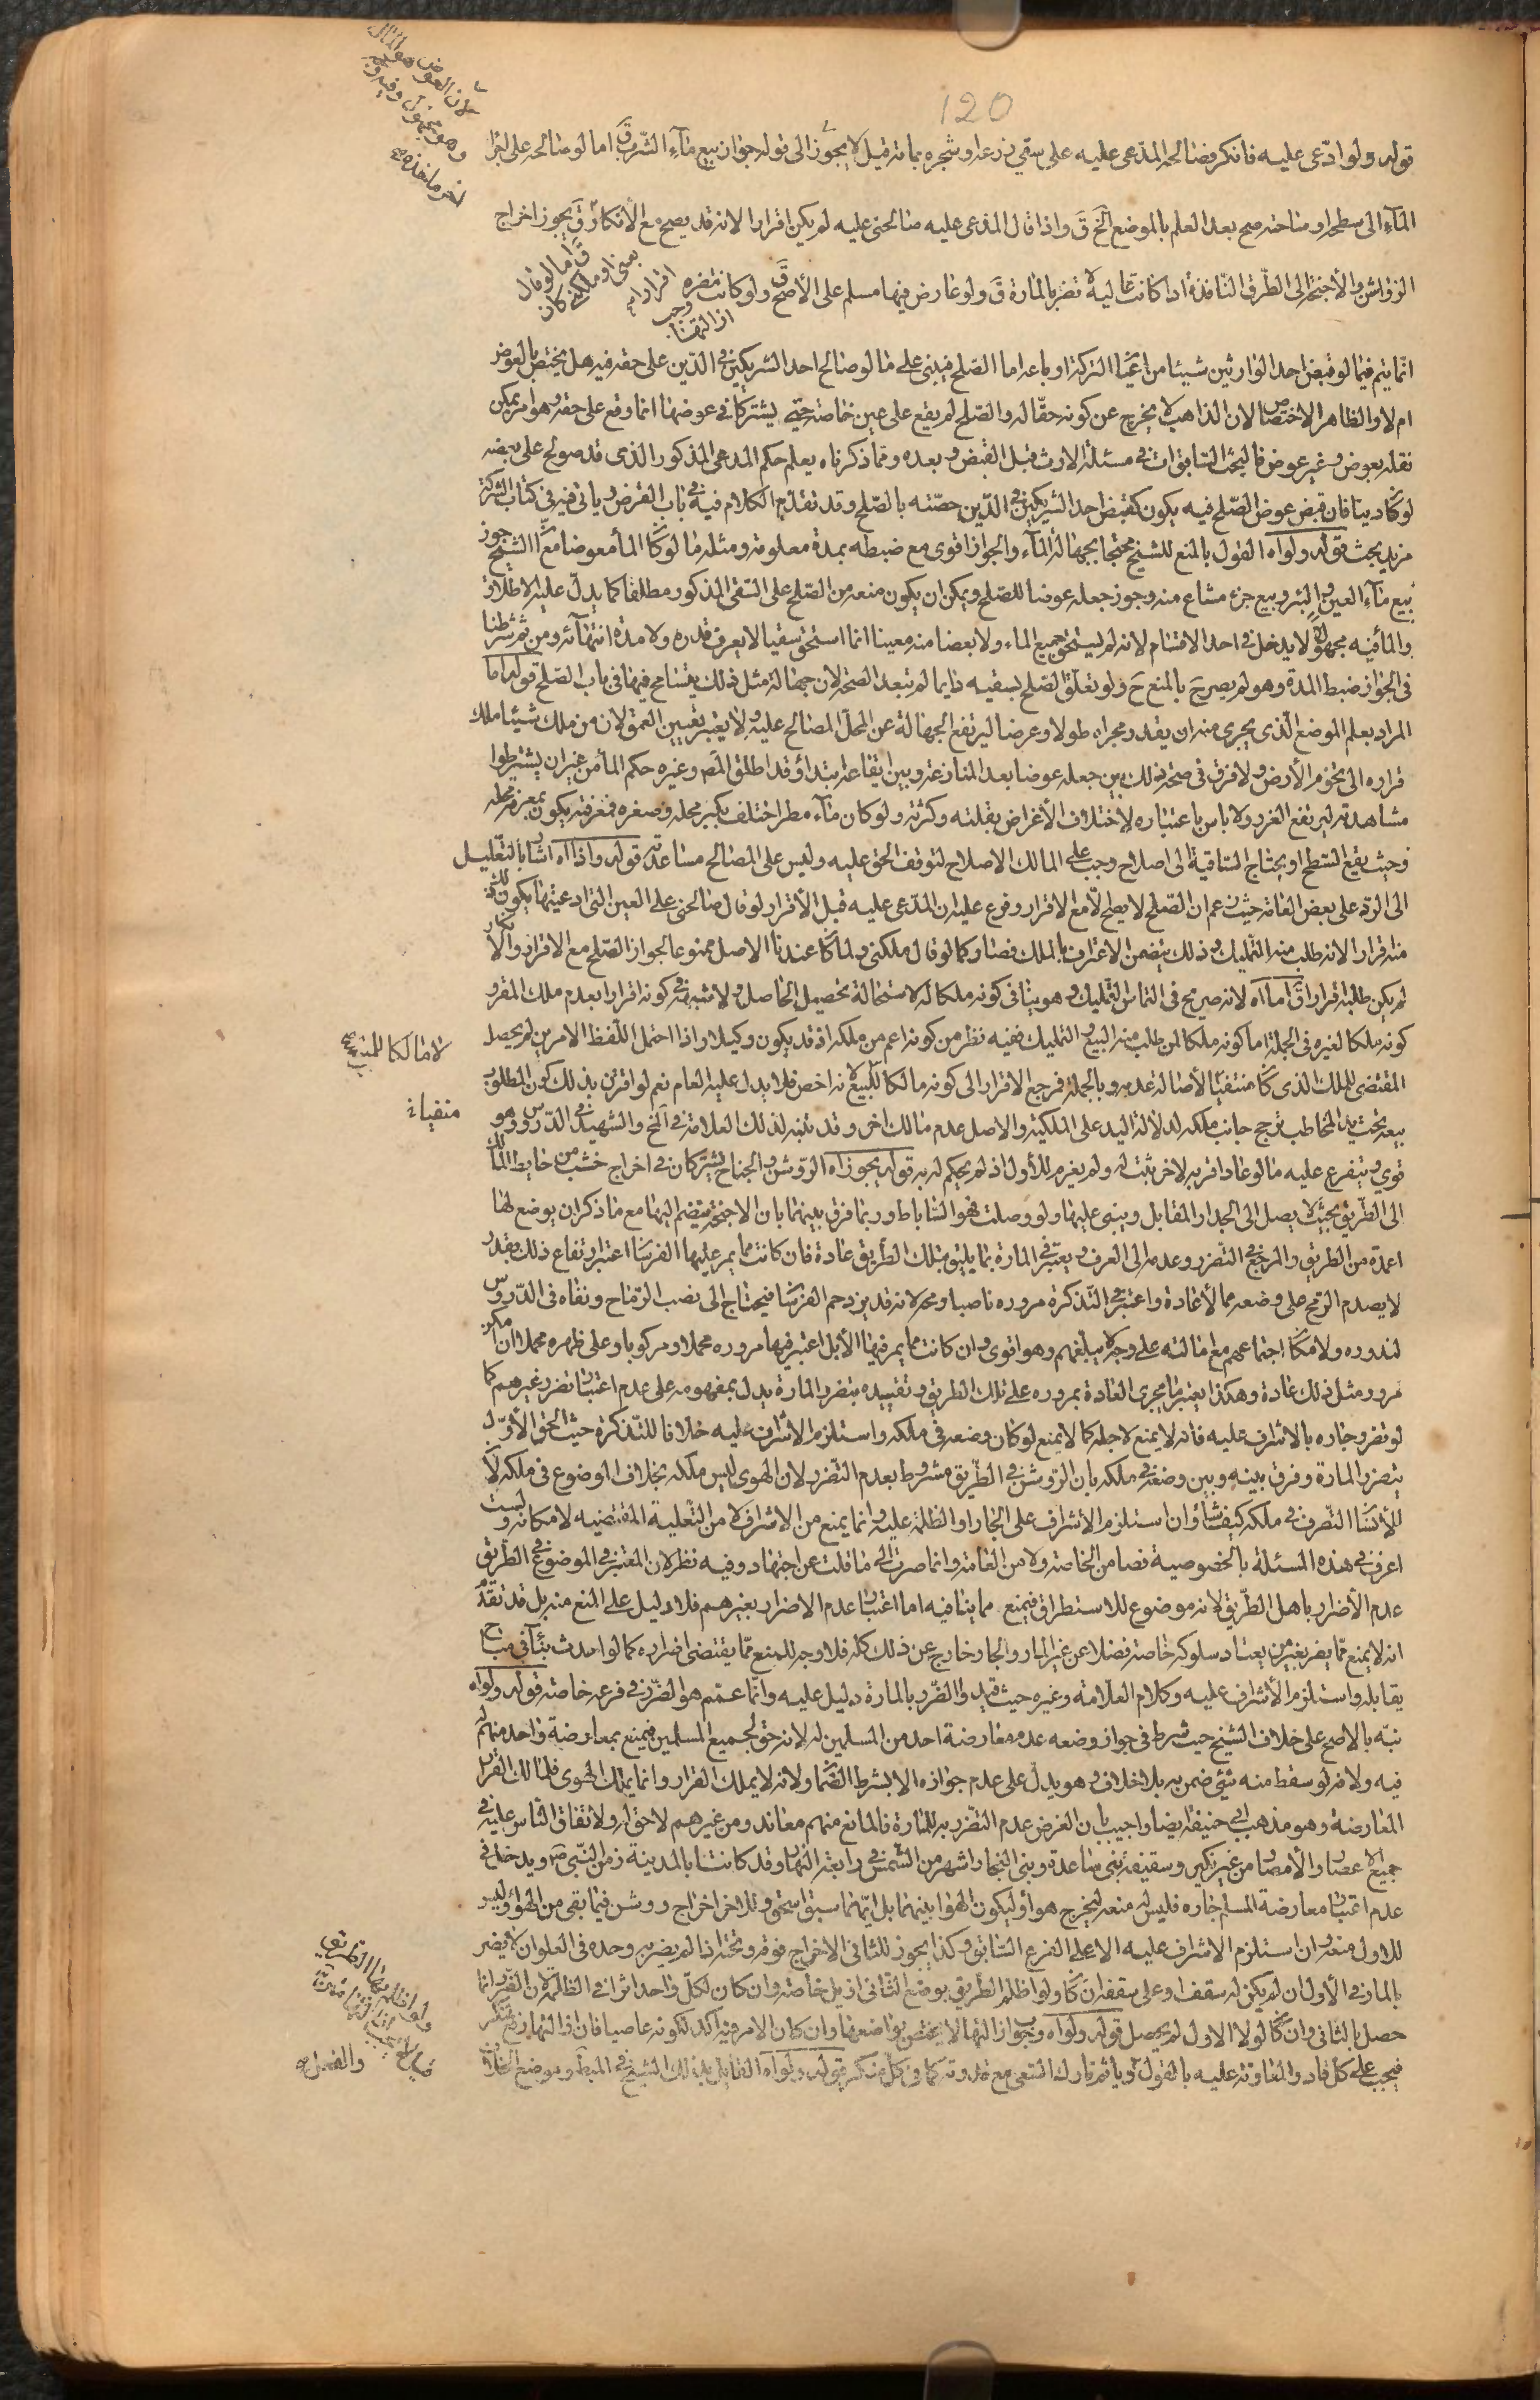 120
لان العوض هو الماء
وهو مجهول وفيه
قوله ولو ادّعى عليه فانكر فصالحه المدّعى عليه على سقي زرعه او شجره بمائه قيل لا يجوز الى قوله جواز بيع ماء الشرب ق اما لو صالحه على اجراء
الماء الى سطحه او ساحته صح بعد العلم بالموضع الخ ق واذا قال المدعى عليه صالحني عليه لم يكن اقرارا لانه قد يصح مع الانكار ق يجوز اخراج
ق اما لو قال
بعني او ملكني كان
اقرارا
الرواشن والاجنحة الى الطرق النافذة اذا كانت عالية لا تضر بالمارة ق ولو عارض فيها مسلم على الاصح ق ولو كانت مضرة وجب
ازالتها
انما يتم فيما لو قبض احد الوارثين شيئا من اعيان التركة او باعه اما الصلح فيبنى على ما لو صالح احد الشريكين في الدين على حقه فيه هل يختص بالعوض
ام لا والظاهر الاختصاص لان الذاهب لا يخرج عن كونه حقا له والصلح لم يقع على عين خاصة حتى يشتركا في عوضها انما وقع على حقه وهو امر يمكن
نقله بعوض وغير عوض فالبحث السابق ات في مسئلة الارث قبل القبض وبعده ومما ذكرناه يعلم حكم المدعى المذكور الذي قد صولح على بعضه
لو كان دينا فان قبض عوض الصلح فيه يكون كقبض احد الشريكين في الدين حصته بالصلح وقد تقدم الكلام فيه في باب القرض وياتي فيه في كتاب الشركة
مزيد بحث قوله ولو اه القول بالمنع للشيخ محتجا بجهالة الماء والجواز اقوى مع ضبطه بمدة معلومة ومثله ما لو كان الماء معوضا مع ان الشيخ جوز
بيع ماء العين والبئر وبيع جزء مشاع منه وجوز جعله عوضا للصلح ويمكن ان يكون منعه من الصلح على السقي المذكور مطلقا كما يدل عليه الاطلاق
والماء فيه مجهول لا يدخل في احد الاقسام لانه لم يستحق جميع الماء ولا بعضا منه معينا انما استحق سقيا لا يعرف قدره ولا مدة انتهائه ومن ثم شرطنا
في الجواز ضبط المدة وهو لم يصرح بالمنع ح ولو تعلق الصلح بسقيه دايما لم تبعد الصحة لان جهالة مثل ذلك يتسامح فيها في باب الصلح قوله اما
المراد بعلم الموضع الذي يجري منه ان يقدر مجراه طولا وعرضا ليرتفع الجهالة عن المحل المصالح عليه ولا يعتبر تعيين العمق لان من ملك شيئا ملك
قراره الى تخوم الارض ولا فرق في صحة ذلك بين جعله عوضا بعد المنازعة وبين ايقاعه ابتداء وقد اطلق المص وغيره حكم الماء من غير ان يشترطوا
مشاهدته ليرتفع الغرر ولا باس باعتباره لاختلاف الاغراض بقلته وكثرته ولو كان ماء مطر اختلف بكبر محله وصغره فمعرفته يكون بمعرفة محله
وحيث يقع السطح او يحتاج الساقية الى اصلاح وجب على المالك الاصلاح لتوقف الحق عليه وليس على المصالح مساعدته قوله واذا اه اشار بالتعليل
الى الرد على بعض العامة حيث زعم ان الصلح لا يصح الا مع الاقرار وفرع عليه ان المدعى عليه قبل الاقرار لو قال صالحني على العين التي ادعيتها يكون
منه اقرارا لانه طلب منه التمليك وذلك يتضمن الاعتراف بالملك فصار كما لو قال ملكني ولما كان عندنا الاصل ممنوعا لجواز الصلح مع الاقرار والانكار
لم يكن طلبه اقرارا ق اما اه لانه صريح في التماس التمليك وهو ينافي كونه ملكا له لاستحالة تحصيل الحاصل ولا شبهة في كونه اقرارا بعدم ملك المقر و
كونه ملكا لغيره في الجملة اما كونه ملكا لمن طلب منه البيع او التمليك ففيه نظر من كونه اعم من ملكه اذ قد يكون وكيلا واذا احتمل اللفظ الامرين لم يحصل
لا مالكا للمبيع
المقتضي للملك الذي كان منتفيا لاصالة عدمه وبالجملة فمرجع الاقرار الى كونه مالكا للبيع لانه اخص فلا يدل عليه العام نعم لو اقترن بذلك كون المطلوب
بيعه تحت يد المخاطب ترجح جانب ملكه لدلالة اليد على الملكية والاصل عدم مالك اخر وقد تنبه لذلك العلامة في الخ والشهيد في الدروس وهو
قوي ويتفرع عليه ما لو عاد اقر به لاخر يثبت له ولم يغرم للاول اذ لم يحكم له به قوله يجوز اه الروشن والجناح يشتركان في اخراج خشب من حايط المالك
الى الطريق بحيث لا يصل الى الجدار المقابل ويبنى عليها ولو وصلت فهو الساباط وربما فرق بينهما بان الاجنحة ينضم اليها مع ما ذكر ان يوضع لها
اعمدة من الطريق والمرجع في التضرر وعدمه الى العرف ويعتبر في المارة بما يليق بتلك الطريق عادة فان كانت مما يمر عليها الفرسان اعتبر ارتفاع ذلك بقدر
لا يصدم الرمح على وضعه مما الا عادة واعتبر في التذكرة مروره ناصبا رمحه لانه قد يزدحم الفرسان فيحتاج الى نصب الرماح ونفاه في الدروس
لندوره ولامكان اجتماعهم مع امالته على وجه لا يبلغهم وهو اقوى وان كانت مما يمر فيها الابل اعتبر فيها مروره محملا ومركوبا وعلى ظهره محمل ان امكن
مرور مثل ذلك عادة وهكذا يعتبر ما يجري العادة بمروره على تلك الطريق وتقييده بتضرر المارة يدل بمفهومه على عدم اعتبار تضرر غيرهم كما
لو تضرر جاره بالاشراف عليه فانه لا يمنع لاجله كما لا يمنع لو كان وضعه في ملكه واستلزم الاشراف عليه خلافا للتذكرة حيث الحق الاول
بتضرر المارة وفرق بينه وبين وضعه في ملكه بان الروشن في الطريق مشروط بعدم التضرر لان الهوى ليس ملكه بخلاف الموضوع في ملكه لان
للانسان التصرف في ملكه كيف شاء وان استلزم الاشراف على الجار او الظلمة عليه وانما يمنع من الاشراف لا من التعلية المقتضية لامكانه ولست
اعرف في هذه المسئلة بالخصوصية نصا من الخاصة ولا من العامة وانما صرت الى ما قلت عن اجتهاد وفيه نظر لان المعتبر في الموضوع في الطريق
عدم الاضرار باهل الطريق لانه موضوع للاستطراق فيمنع مما ينافيه اما اعتبار عدم الاضرار بغيرهم فلا دليل على المنع منه بل قد تقدم
انه لا يمنع مما يضر بغير من يعتاد سلوكه خاصة فضلا عن غير المار والجار خارج عن ذلك كله فلا وجه للمنع مما يقتضي اضراره كما لو احدث بناء في مباح
يقابله واستلزم الاشراف عليه وكلام العلامة وغيره حيث قيد والضرر بالمارة دليل عليه وانما عمم هو الضرر في فرعه خاصة قوله ولو اه
نبه بالاصح على خلاف الشيخ حيث شرط في جواز وضعه عدم معارضة احد من المسلمين له لانه حق لجميع المسلمين فيمنع بمعارضة واحد منهم له
فيه ولانه لو سقط منه شيء ضمن به بلا خلاف وهو يدل على عدم جوازه الا بشرط الضمان ولانه لا يملك القرار وانما يملك الهوى فلمالك القرار
المعارضة وهو مذهب ابي حنيفة ايضا واجيب بان الغرض عدم التضرر به للمارة فالمانع منهم معاند ومن غيرهم لا حق له ولاتفاق الناس عليه في
جميع الاعصار والامصار من غير نكير وسقيفة بني ساعدة وبني النجار اشهر من الشمس في رابعة النهار وقد كانتا بالمدينة زمن النبي ص ويدخل في
عدم اعتبار معارضة المسلم جاره فليس له منعه ليخرج هو او ليكون الهوا بينهما بل ايهما سبق استحق وللاخر اخراج روشن فيما بقي من الهواء وليس
للاول منعه وان استلزم الاشراف عليه الا على الفرع السابق وكذا يجوز للثاني الاخراج فوقه وتحته اذا لم يضر به وحده في العلو ان لا يضر
بالمار في الاول ان لم يكن له سقف او على سقفه ان كان ولو اظلم الطريق بوضع الثاني ازيل خاصة وان كان لكل واحد اثر في الظلمة لان الضرر انما
ولو اظلم بها الطريق
حصل بالثاني وان كان لولا الاول لم يحصل قوله ولو اه وجوب ازالتها لا يختص بواضعها وان كان الامر فيه اكد لكونه عاصيا فان ازالتها رفع منكر
فيجب على كل قادر والمعاونة عليه بالقول وياثم تارك السعي مع قدرته كما في كل منكر قوله ولو اه القايل بذلك الشيخ في المبسوط وموضع الخلاف